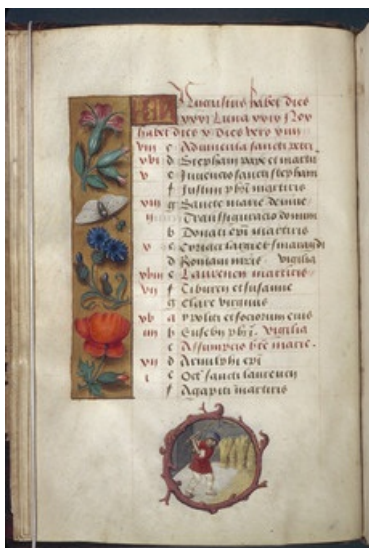 Augustus habet dies
xxxi Luna xxix Nox
habet dies v Dies vero viiii
viii c Ad vincula sancti petri
xvi d Stephani pape et martir
v e Inuencio sancti stephani
f Iustini martiris
viii g Sancte marie de niue
ii Transfiguracio domini
b Donati epi martiris
v c Ciriaci largi et smaragdi
d Romani mris vigilia
xviii e Laurencii martiris
vii f Tiburcii et susanne
g Clare virginis
xv a ypoliti et sociorum eius
iiii b Eusebii pbri vigilia
c Assumpcio bte marie
vii d Arnulphi epi
i e Oct sancti laurencii
f Agapiti martiris